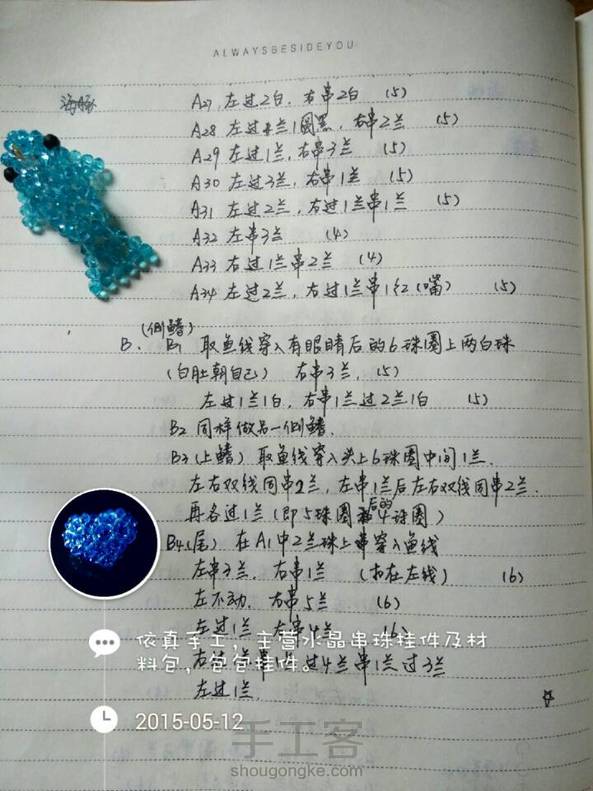 ALWAYSBESIDEYOU
海豚
A27 左过2白. 右串2白 (5)
A28 左过1兰1圆黑, 右串2兰 (5)
A29 左过1兰, 右串3兰 (5)
A30 左过3兰, 右串1兰 (5)
A31 左过2兰, 右过1兰串1兰 (5)
A32 左串3兰 (4)
A33 右过1兰串2兰 (4)
A34 左过2兰, 右过1兰串1红(嘴) (5)
(侧鳍)
B. B1 取鱼线穿入有眼睛后的6珠圈上两白珠
(白肚朝自己) 右串3兰, (5)
左过1兰1白, 右串1兰过2兰1白 (5)
B2 同样做另一侧鳍.
B3(上鳍) 取鱼线穿入头上6珠圈中间1兰.
左右双线同串2兰, 左串1兰后左右双线同串2兰.
再各过1兰 (即5珠圈后的4珠圈)
B4(尾) 在A1中2兰珠上串穿入鱼线
左串3兰. 右串1兰 (扣在左线) (6)
左不动. 右串5兰 (6)
左过1兰 右串4兰 (6)
过4兰串1兰过3兰
左过1兰.
依真手工，主营水晶串珠挂件及材
料包，包包挂件。
2015-05-12
手工客
shougongke.com